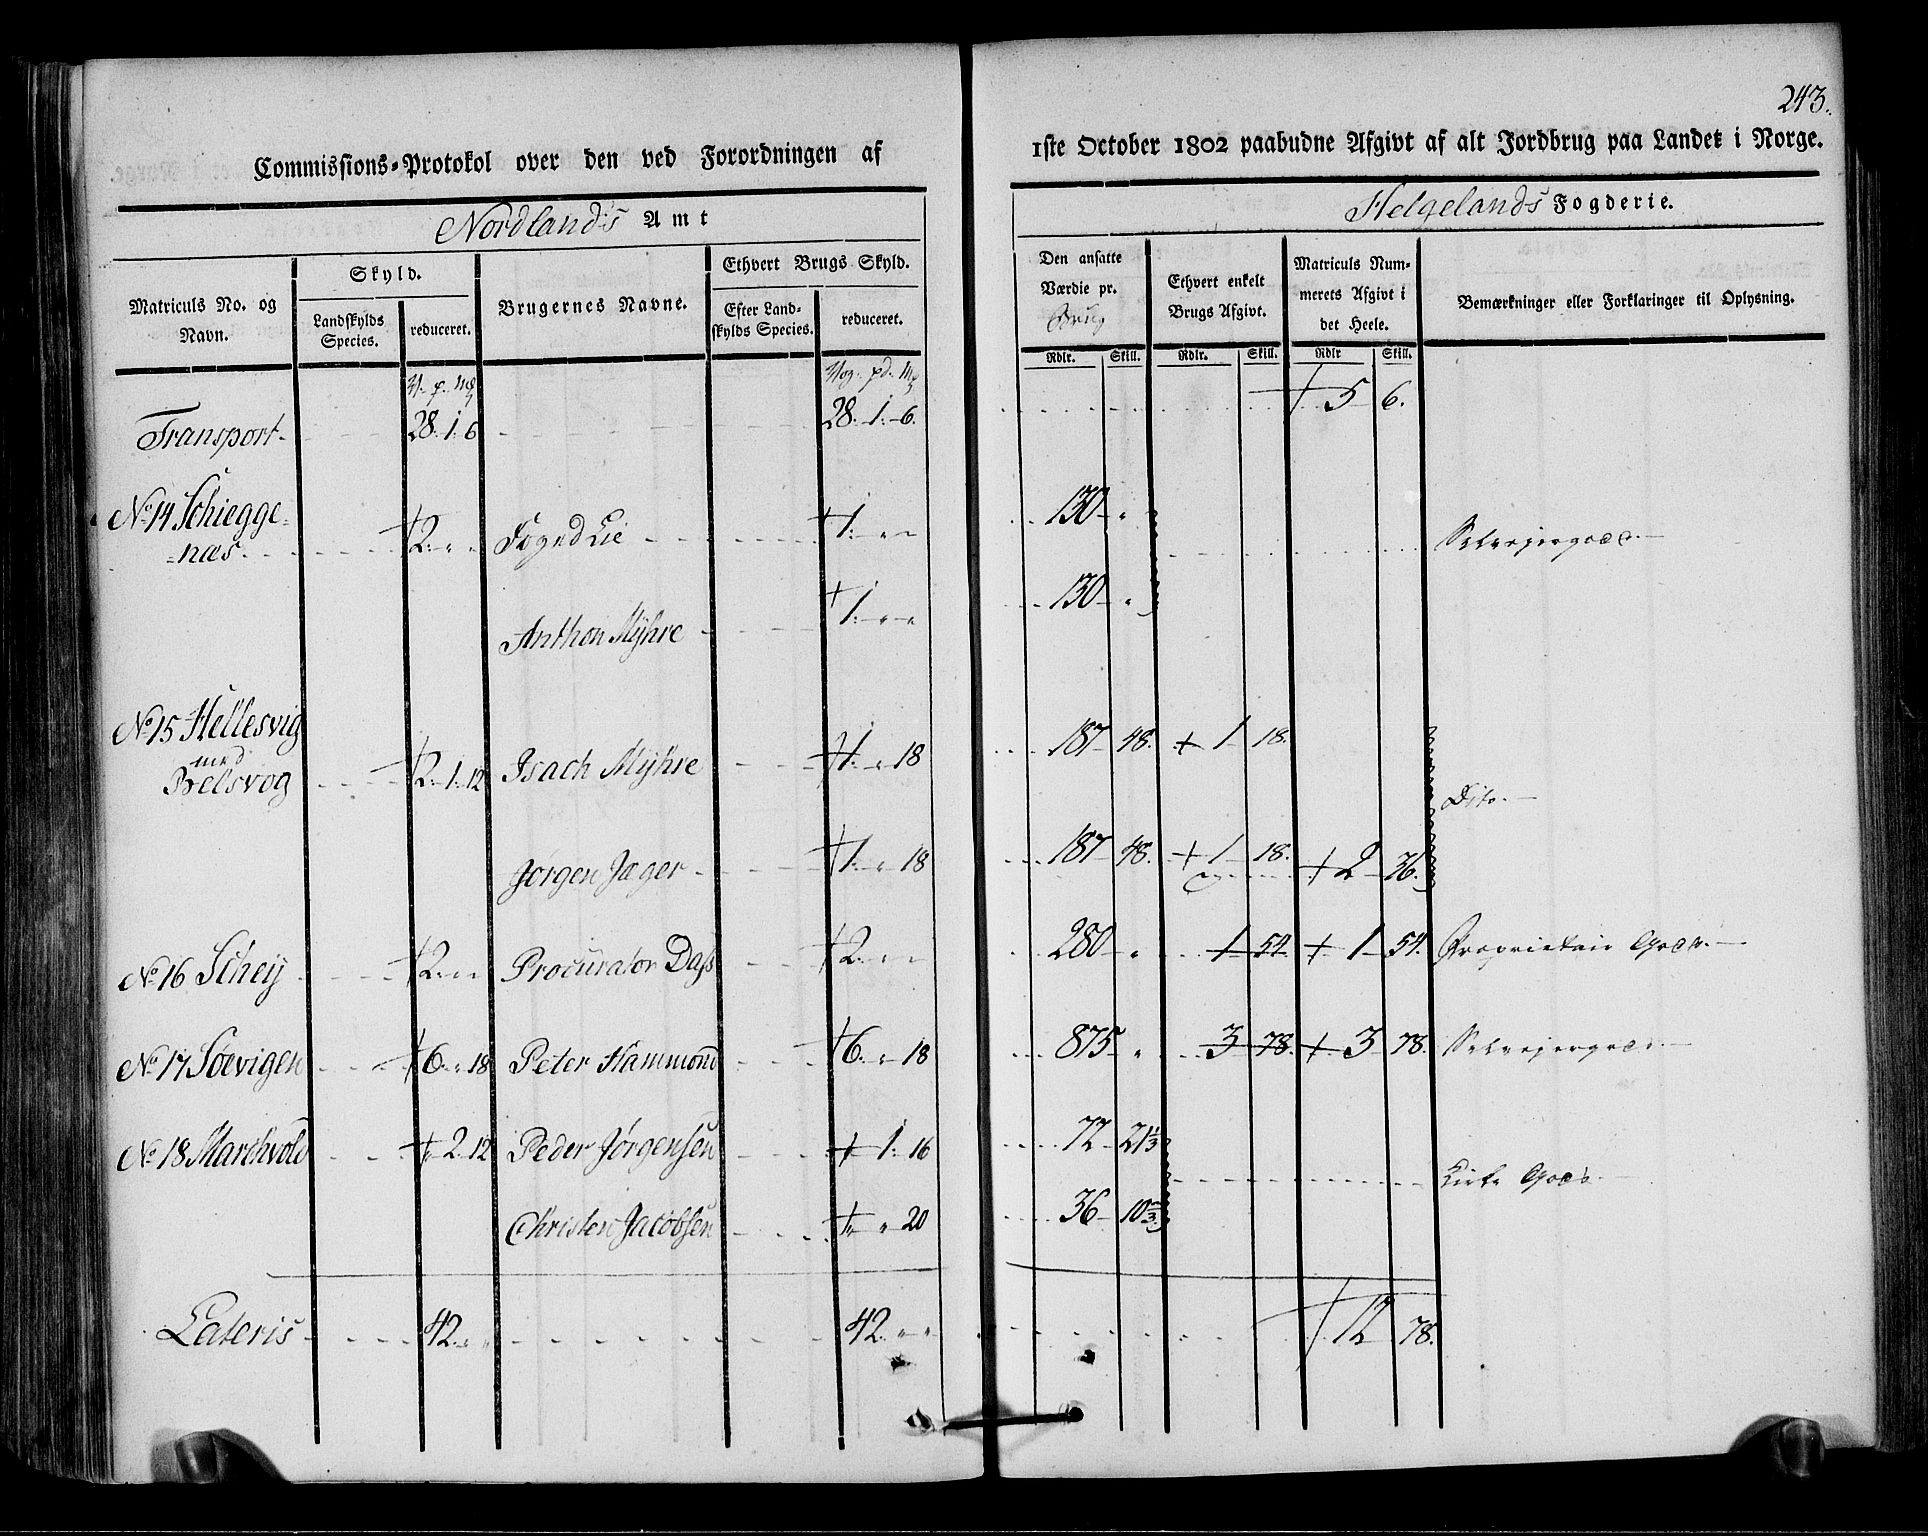 243.
Commissions-Protokol over den ved Forordningen af
1ste October 1802 paabudne Afgivt af alt Jordbrug paa Landet i Norge.
Nordland's Amt
Helgelands Fogderie.
Matriculs No. og Navn.
Skyld.
Landskylds Species.
reduceret.
Brugernes Navne.
Ethvert Brugs Skyld.
Efter Landskylds Species.
reduceret.
Den ansatte Værdie pr. Brug
Ethvert enkelt Brugs Afgivt.
Matriculs Nummerets Afgivt i det Heele.
Bemærkninger eller Forklaringer til Oplysning.
Rdlr. Skill. Rdlr. Skill. Rdlr Skill.
V. p. mg Vog. pd. Mg
Transport 28. 1. 6 28. 1. 6. + 5 6.
No. 14 Schieggenæs + 2. " " Foged Lie + 1. " " 130 " Selvejergods.
Anthon Mÿhre + 1. " " 130 "
No. 15 Hellesvig med Belsvog + 2. 1. 12 Isach Mÿhre + 1. " 18 187 48. + 1 18. Dito.
Jørgen Jæger + 1. " 18 187 48. + 1 18. + 2 36.
No. 16 Scheij + 2. " " Procurator Dass + 2. " " 280 " 1 54 + 1 54. Proprietair Gods.
No. 17 Søevigen + 6. " 18 Peter Hammond + 6. " 18 875 " 3 78. + 3 78. Selvejergods.
No. 18 Marchvold + " 2 12 Peder Jørgensen + 1. 16 72 21 1/3 Kirke Gods.
Christen Jacobsen + " " 20 36 10 2/3
Lateris 42. " " 42. " " + 12 78.